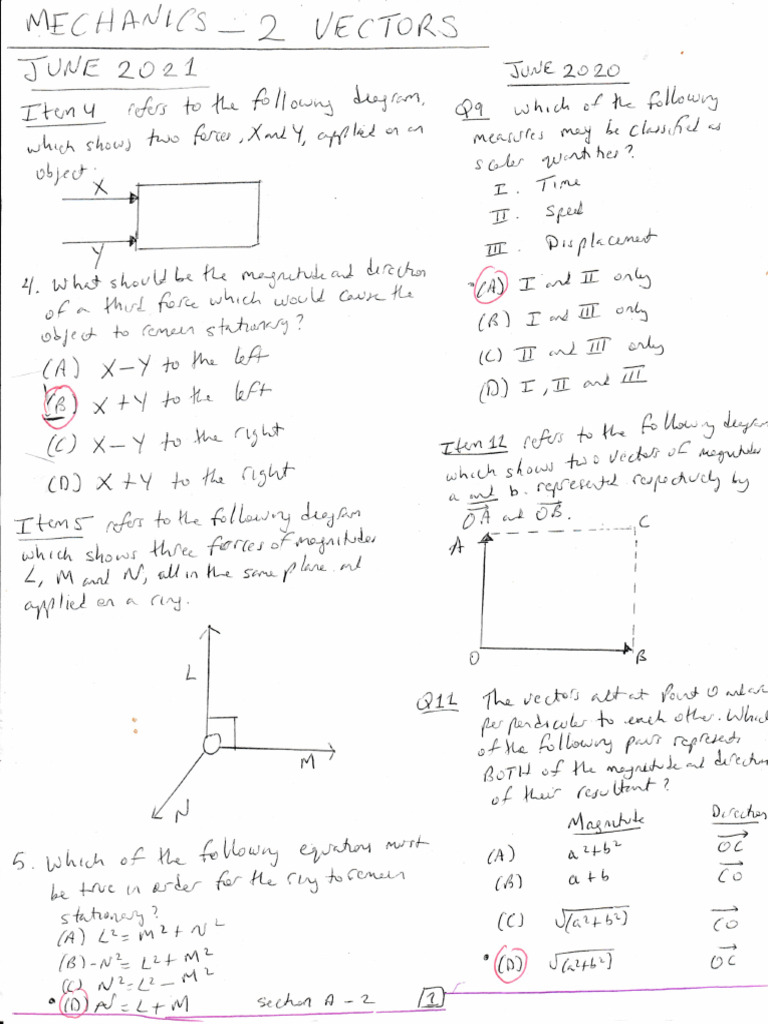 MECHANICS - 2 VECTORS
JUNE 2021
Item 4 refers to the following diagram,
which shows two forces, X and Y, applied on an
object.
X
Y
4. What should be the magnitude and direction
of a third force which would cause the
object to remain stationary?
(A) X - Y to the left
(B) X + Y to the left
(C) X - Y to the right
(D) X + Y to the right
Item 5 refers to the following diagram
which shows three forces of magnitudes
L, M and N, all in the same plane and
applied on a ring.
L
M
N
5. Which of the following equations must
be true in order for the ring to remain
stationary?
(A) L² = M² + N²
(B) -N² = L² + M²
(C) N² = L² - M²
(D) N = L + M
Section A - 2
1
JUNE 2020
Q9 Which of the following
measures may be classified as
scalar quantities?
I. Time
II. Speed
III. Displacement
(A) I and II only
(B) I and III only
(C) II and III only
(D) I, II and III
Item 11 refers to the following diagram
which shows two vectors of magnitudes
a and b. represented respectively by
OA and OB.
A
C
O
B
Q11 The vectors act at point O and are
perpendicular to each other. Which
of the following pairs represents
BOTH of the magnitude and direction
of their resultant?
Magnitude Direction
(A) a² + b² OC
(B) a + b CO
(C) √(a² + b²) CO
(D) √(a² + b²) OC